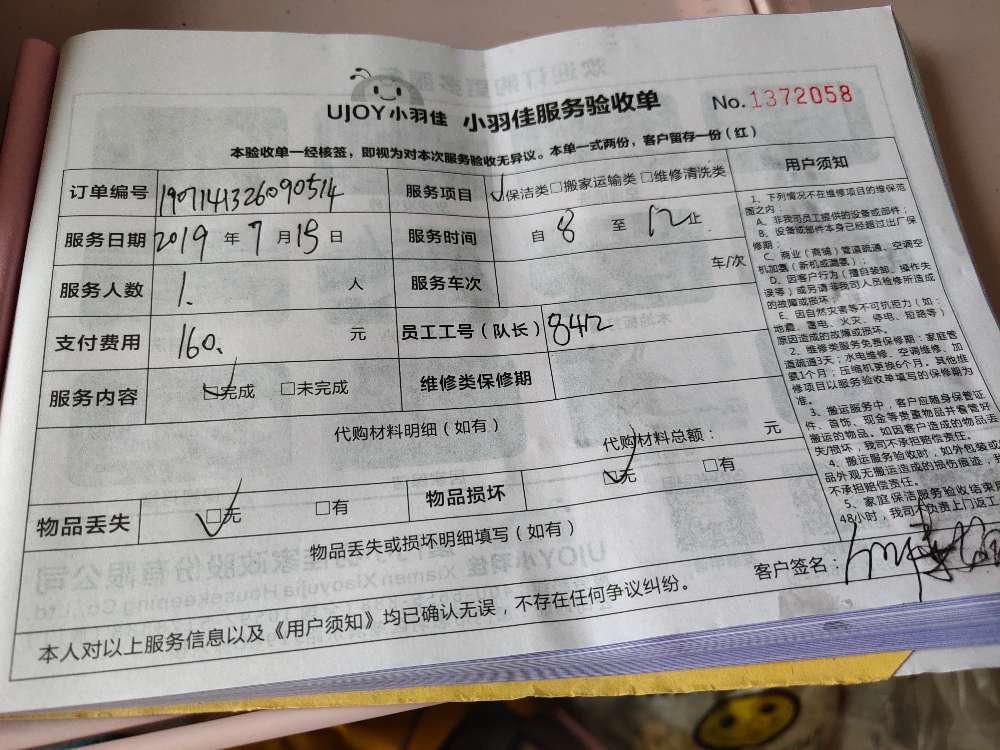 UJOY小羽佳 小羽佳服务验收单 No.1372058
本验收单一经核签，即视为对本次服务验收无异议。本单一式两份，客户留存一份（红）
订单编号 1907114326090514 服务项目 保洁类□搬家运输类□维修清洗类
服务日期 2019 年 7 月 15 日 服务时间 自 8 至 12 止
服务人数 1. 人 服务车次 车/次
支付费用 160. 元 员工工号（队长） 8412
服务内容 □完成 □未完成 维修类保修期
代购材料明细（如有）
代购材料总额： 元
物品丢失 □无 □有 物品损坏 □无 □有
物品丢失或损坏明细填写（如有）
客户签名：
本人对以上服务信息以及《用户须知》均已确认无误，不存在任何争议纠纷。
用户须知
1、下列情况不在维修项目的维保范
围之内：
A、非我司员工提供的设备或部件；
B、设备或部件本身已经超过出厂保
修期；
C、商业（商铺）管道疏通、空调空
机加氟（新机或漏氟）；
D、因客户行为（擅自装卸、操作失
误等）或另请非我司人员检修所造成
的故障或损坏
E、因自然灾害等不可抗拒力（如：
地震、雷电、火灾、停电、短路等）
原因造成的故障或损坏。
2、维修类服务免费保修期：家庭管
道疏通3天；水电维修、空调维修、加
氟1个月；压缩机更换6个月。其他维
修项目以服务验收单填写的保修期为
准。
3、搬运服务中，客户应随身保管证
件、首饰、现金等贵重物品并看管好
搬运的物品。如因客户造成的物品丢
失/损坏，我司不承担赔偿责任。
4、搬运服务验收时，如外包装或
品外观无搬运造成的损伤痕迹，我
不承担赔偿责任。
5、家庭保洁服务验收结束后
48小时，我司不负责上门返工